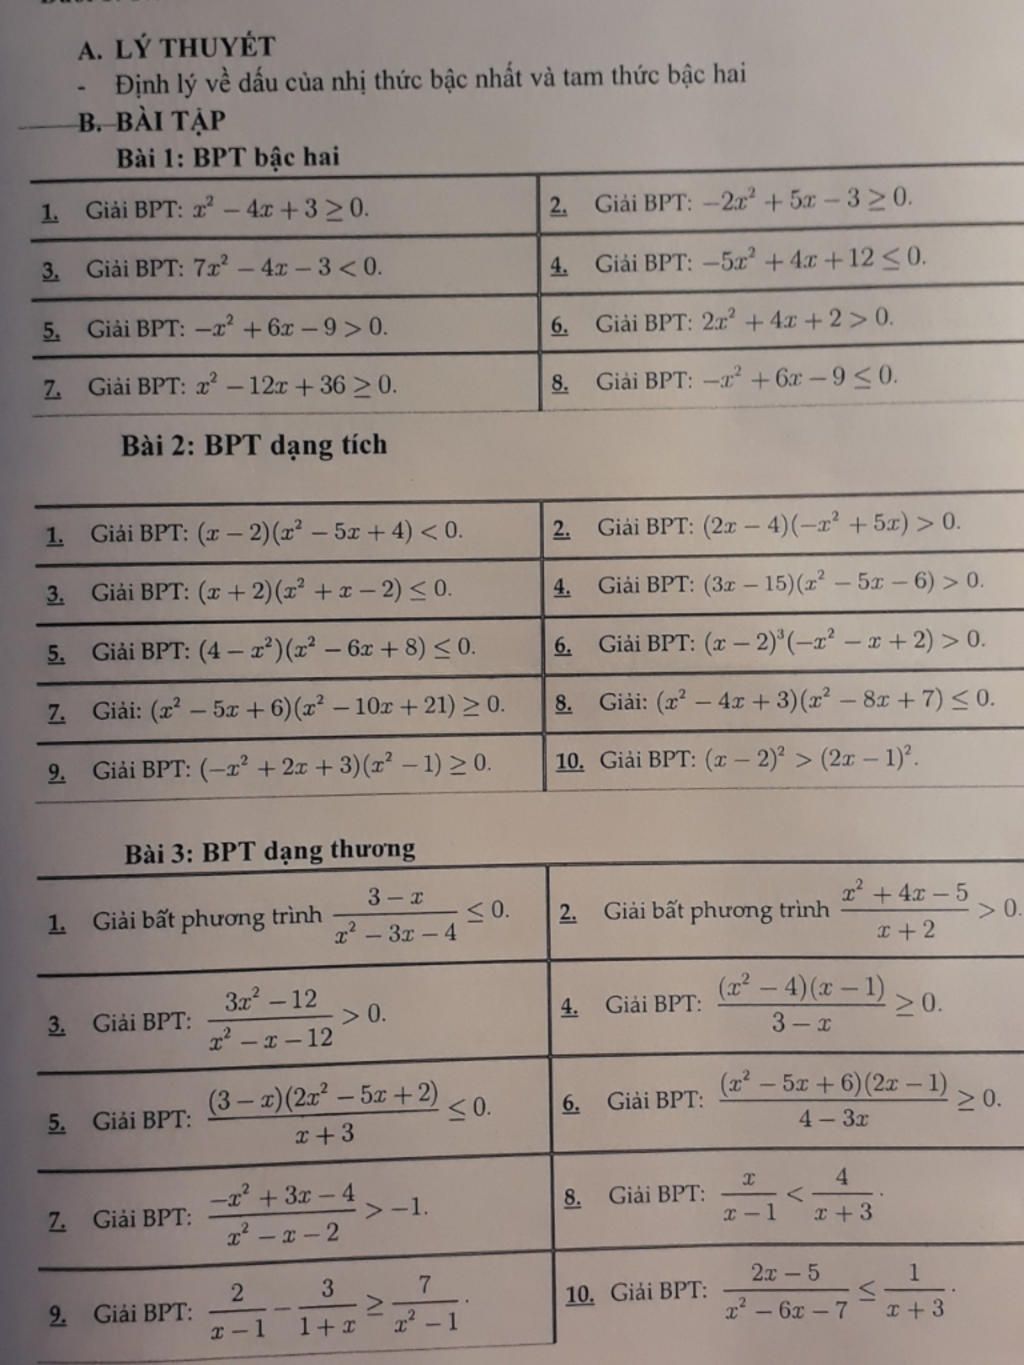 A. LÝ THUYẾT
- Định lý về dấu của nhị thức bậc nhất và tam thức bậc hai
B. BÀI TẬP
Bài 1: BPT bậc hai
1. Giải BPT: x² − 4x + 3 ≥ 0.
2. Giải BPT: −2x² + 5x − 3 ≥ 0.
3. Giải BPT: 7x² − 4x − 3 < 0.
4. Giải BPT: −5x² + 4x + 12 ≤ 0.
5. Giải BPT: −x² + 6x − 9 > 0.
6. Giải BPT: 2x² + 4x + 2 > 0.
7. Giải BPT: x² − 12x + 36 ≥ 0.
8. Giải BPT: −x² + 6x − 9 ≤ 0.
Bài 2: BPT dạng tích
1. Giải BPT: (x − 2)(x² − 5x + 4) < 0.
2. Giải BPT: (2x − 4)(−x² + 5x) > 0.
3. Giải BPT: (x + 2)(x² + x − 2) ≤ 0.
4. Giải BPT: (3x − 15)(x² − 5x − 6) > 0.
5. Giải BPT: (4 − x²)(x² − 6x + 8) ≤ 0.
6. Giải BPT: (x − 2)³(−x² − x + 2) > 0.
7. Giải: (x² − 5x + 6)(x² − 10x + 21) ≥ 0.
8. Giải: (x² − 4x + 3)(x² − 8x + 7) ≤ 0.
9. Giải BPT: (−x² + 2x + 3)(x² − 1) ≥ 0.
10. Giải BPT: (x − 2)² > (2x − 1)².
Bài 3: BPT dạng thương
1. Giải bất phương trình (3 − x)/(x² − 3x − 4) ≤ 0.
2. Giải bất phương trình (x² + 4x − 5)/(x + 2) > 0.
3. Giải BPT: (3x² − 12)/(x² − x − 12) > 0.
4. Giải BPT: (x² − 4)(x − 1)/(3 − x) ≥ 0.
5. Giải BPT: (3 − x)(2x² − 5x + 2)/(x + 3) ≤ 0.
6. Giải BPT: (x² − 5x + 6)(2x − 1)/(4 − 3x) ≥ 0.
7. Giải BPT: (−x² + 3x − 4)/(x² − x − 2) > −1.
8. Giải BPT: x/(x − 1) < 4/(x + 3).
9. Giải BPT: 2/(x − 1) − 3/(1 + x) ≥ 7/(x² − 1).
10. Giải BPT: (2x − 5)/(x² − 6x − 7) ≤ 1/(x + 3).